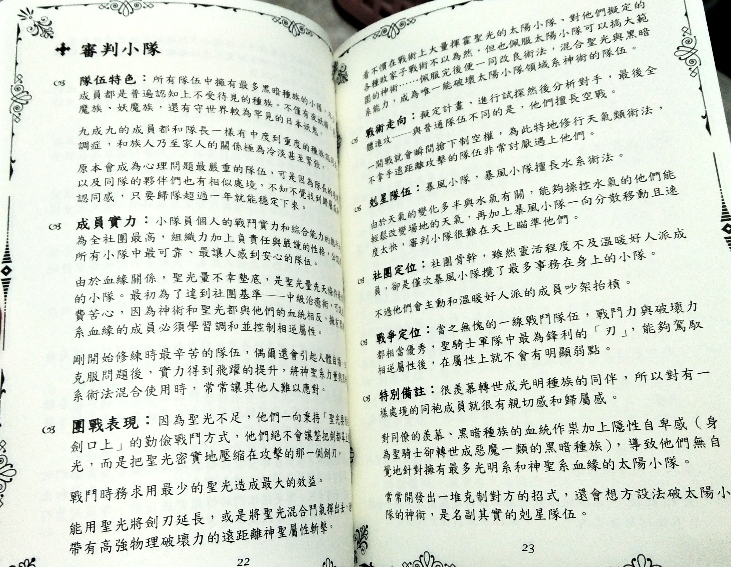 審判小隊
隊伍特色：所有隊伍中擁有最多黑暗種族的小隊，
成員都是普遍認知上不受待見的種族。不僅有
魔族、妖魔族，還有守世界較為罕見的日本
九成九的成員都和隊長一樣有中度到重度的種族
調症，和族人乃至家人的關係極為冷淡甚至
原本會成為心理問題最嚴重的隊伍，可是因為隊長
以及同隊的夥伴們也有相似處境，不知不覺找到
認同感，只要歸隊超過一年就能穩定下來。
成員實力：小隊員個人的戰鬥實力和綜合能力的
為全社團最高，組織力加上負責任與嚴謹的性格，
所有小隊中最可靠、最讓人感到安心的隊伍。
由於血緣關係，聖光量不幸墊底，是聖光量先天
的小隊。最初為了達到社團基準——中級治癒術，可
費苦心，因為神術和聖光都與他們的血統相反，
系血緣的成員必須學習調和並控制相逆屬性。
剛開始修練時最辛苦的隊伍，偶爾還會引起人體自
克服問題後，實力得到飛躍的提升，將神聖系力量
系術法混合使用時，常常讓其他人難以應對。
團戰表現：因為聖光不足，他們一向秉持「聖光
劍口上」的勤儉戰鬥方式，他們絕不會讓整把劍都
光，而是把聖光密實地壓縮在攻擊的那一個劍刃。
戰鬥時務求用最少的聖光造成最大的效益。
能用聖光將劍刃延長，或是將聖光混合鬥氣揮出去，
帶有高強物理破壞力的遠距離神聖屬性斬擊。
22
看不慣在戰術上大量揮霍聖光的太陽小隊，對他們擬定的
各種敗家子戰術不以為然，但也佩服太陽小隊可以搞大範
圍的神術……佩服完後便一同改良術法，混合聖光與黑暗
系能力，成為唯一能破壞太陽小隊領域系神術的隊伍。
戰術走向：擬定計畫、進行試探然後分析對手，最後全
體速攻——與普通隊伍不同的是，他們擅長空戰。
一開戰就會瞬間搶下制空權，為此特地修行天氣類術法，
不拿手遠距離攻擊的隊伍非常討厭遇上他們。
剋星隊伍：暴風小隊，暴風小隊擅長水系術法。
由於天氣的變化多半與水氣有關，能夠操控水氣的他們能
輕鬆改變場地的天氣，再加上暴風小隊一向分散移動且速
度太快，審判小隊很難在天上瞄準他們。
社團定位：社團骨幹，雖然靈活程度不及溫暖好人派成
員，卻是僅次暴風小隊攬了最多事務在身上的小隊。
不過他們會主動和溫暖好人派的成員吵架抬槓。
戰爭定位：當之無愧的一線戰鬥隊伍，戰鬥力與破壞力
都相當優秀，聖騎士軍隊中最為鋒利的「刃」，能夠駕馭
相逆屬性後，在屬性上就不會有明顯弱點。
特別備註：很羨慕轉世成光明種族的同伴，所以對有一
樣處境的同袍成員就很有親切感和歸屬感。
對同僚的羨慕、黑暗種族的血統作祟加上隱性自卑感（身
為聖騎士卻轉世成惡魔一類的黑暗種族），導致他們無自
覺地針對擁有最多光明系和神聖系血緣的太陽小隊。
常常開發出一堆克制對方的招式，還會想方設法破太陽小
隊的神術，是名副其實的剋星隊伍。
23